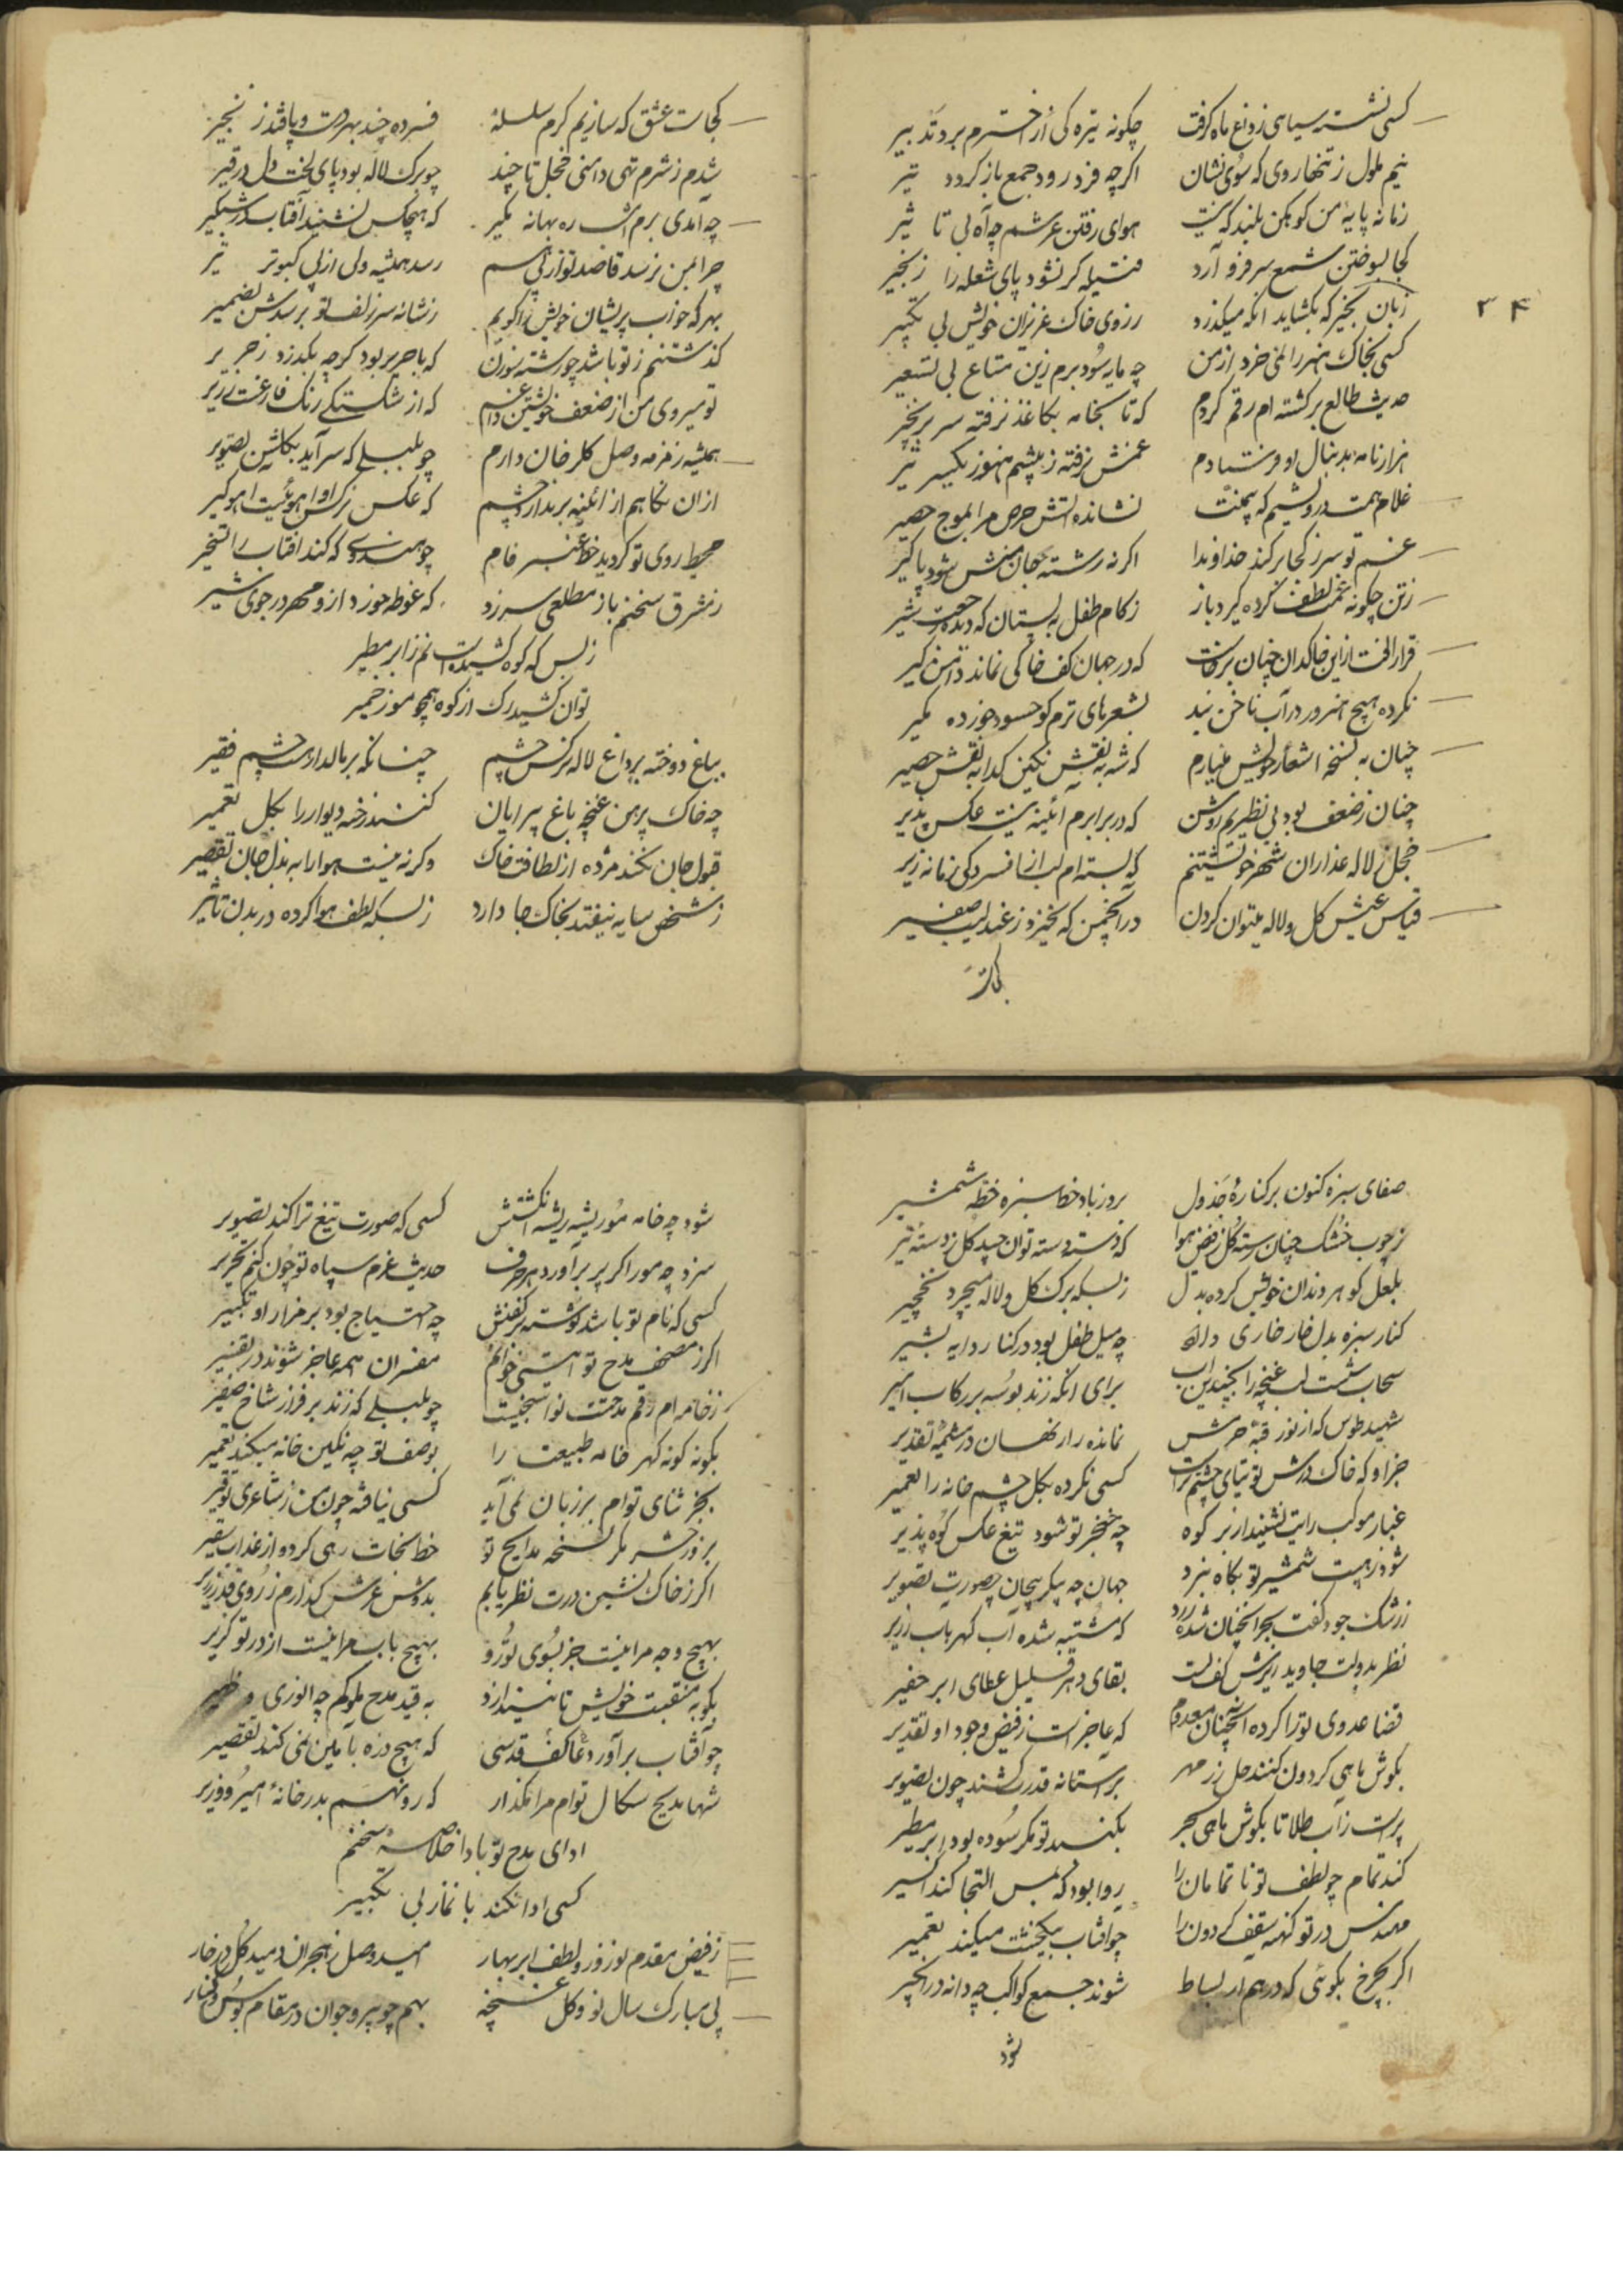 کسی نشسته سیاهی ز داغ ماه گرفت چگونه تیره‌گی از اخترم برد تدبیر
نیم ملول ز تنها روی که سوی نشان اگرچه فرد رود جمع باز گردد تیر
زمانه پایهٔ من کو مکن بلند که نیست هوای رفتن عرشم چه آه بی تا ثیر
کجا بسوختن شمع سر فرو آرد فتیله گر نشود پای شعله را زنجیر
۳۴
زبان بخیر که بگشاید انکه میگذرد ز روی خاک عزیزان خویش بی تکبیر
کسی بخاک هنر را نمی خرد از من چه مایه سود برم زین متاع بی تسعیر
حدیث طالع برگشته ام رقم کردم که تا بخامه بکاغذ نرفته سر بر
هزار نامه بدنبال او فرستادم غمش نرفته ز پیشم هنوز یکسر تیر
غلام همت درویشیم که نشانده آتش حرص مرا بموج حصیر
غم تو سر ز کجا بر کند خداوندا اگر نه رشته جان منش شود پاگیر
ز تن چگونه غمت لطف کرده گیرد باز ز کام طفل به پستان که دیده شیر
قرار الخت ازین خاکدان چنان برخاست که در جهان کف خاکی نماند دامن گیر
نکرده هیچ هنرور در آب ناخن بند بشعرهای ترم گو حسود خورده مگیر
چنان به نسخه اشعار خویش مینازم که شه به نقش نگین گدا به نقش حصیر
چنان ز ضعف بود بی نظیریم روشن که در برابرم آئینه نیست عکس پذیر
خجل ز لاله عذاران شهر خویشتنم که بسته ام لب از افسردگی زمانه زیر
قیاس عیش گل و لاله میتوان کردن در انجمن که نخیزد ز عندلیب صفیر
کجاست عشق که سازیم گرم سلسلهٔ فسرده چند بهر دست و پا فتد زنجیر
شدم ز شرم تهی دامنی خجل تا چند چو برک لاله بود پای لخت دل در قیر
چه آمدی برم امشب ره بهانه مگیر که هیچکس نشنید آفتاب در شبگیر
چرا بمن نرسد قاصد تو از پی هم رسد همیشه ولی از پی کبوتر تیر
بهر که خواب پریشان خویش را گویم ز شانه سر زلف تو بر سرش تعبیر
گذشتنم ز تو باشد چو رشته سوزن که با حریر بود گرچه بگذرد ز حریر
تو میروی من از ضعف خویشتن داغم که از شکستگی رنک فارغست زریر
همیشه زمزمه وصل گلرخان دارم چو بلبلی که سر آید بگلشن تصویر
ازان نگاهم از ائینه بر ندارد چشم که عکس نرگس او اهوئیست اهوگیر
محیط روی تو گردید خط عنبر فام چو هندوی که کند آفتاب را تسخیر
ز مشرق سخنم باز مطلعی سر زد که غوطه خورد ازو مهر در جوی شیر
ز بس که کوه کشیده است نم ز ابر مطیر
توان کشید رک از کوه همچو مو ز خمیر
بباغ دوخته بر داغ لاله نرگس چشم چنانکه بر مالدار هست چشم فقیر
چه خاک پیرهن غنچه باغ پیرایان کنند رخنه دیوار را بگل تعمیر
قبول جان نکند مرده از لطافت خاک وگرنه نیست هوا را به بذل جان تقصیر
ز شخص سایه نیفتد بخاک جا دارد ز بسکه لطف هوا کرده در بدن تاثیر
صفای سبزه کنون بر کنارهٔ جدول بروز باد خط سبزه خطهٔ شمشیر
ز چوب خشک چنان رسته گل ز فیض هوا که دسته دسته توان چید گل ز دسته تیر
بلعل کوهر دندان خویش کرده بدل ز بسکه برک گل و لاله میچرد نخچیر
کنار سبزه بدل خار خاری دارد چه میل طفل بود در کنار دایه بشیر
سحاب شست لب غنچه را بچندین آب برای انکه زند بوسه بر رکاب امیر
شهید طوس که از نور قبهٔ حرمش نمانده راز نهان در مشیمهٔ تقدیر
جز او که خاک درش توتیای چشم تر است کسی نکرده بگل چشم خانه را تعمیر
غبار موکب رایت نشیند ار بر کوه چه خنجر تو شود تیغ عکس کوه پذیر
شود ز هیبت شمشیر تو بگاه نبرد جهان چه پیکر بیجان چه صورت تصویر
ز رشک جود کفت بحر انچنان شده زرد که مشتبه شده آب گهر بآب زریر
نظر بدولت جاوید ریزش کف تست بقای دهر قلیل عطای ابر حقیر
قضا عدوی تو را کرده انچنان معدوم که عاجز است ز فیض وجود او تقدیر
بگوش ماهی گردون کنند حل زر مهر بر آستانه قدرت کشند چون تصویر
پر است ز آب طلا تا بگوش ماهی بحر بگنبد تو مگر سوده بود ابر مطیر
کند تمام چو لطف تو نا تمامان را روا بود که بمس التجا کند اکسیر
مهندس در تو کهنه سقف گردون را چو آفتاب بیکخشت میکند تعمیر
اگر بچرخ بگوئی که در هم آر بساط شوند جمع کواکب چه دانه در انجیر
شود
شود چه خامه مو ریشه ریشه انگشتش کسی که صورت تیغ ترا کند تصویر
سزد چه مور اگر پر برآورد هر حرف حدیث عزم سپاه تو چون کنم تحریر
کسی که نام تو باشد نوشته بر کفنش چه احتیاج بود بر مزار او تکبیر
اگر ز مصحف مدح تو آیتی خوانم مفسران همه عاجز شوند در تفسیر
ز خامه ام رقم مدحتت نوا سنجیست چو بلبلی که زند بر فراز شاخ صفیر
بگونه گونه گهر خامه طبیعت را بوصف تو چه نگین خانه میکند تعمیر
بجز ثنای توام بر زبان نمی آید کسی نیافته چون من ز شاعری توقیر
بروز حشر مگر نسخه مدایح تو خط نجات رهی گردد از عذاب سعیر
اگر ز خاک نشین درت نظر یابم بدوش عرش گذارم ز روی قدر سریر
بهیچ وجه مرا نیست جز بسوی تو رو بهیچ باب مرا نیست از در تو گزیر
بگو به منقبت خویش تا نیندازد به قید مدح ملوکم چه انوری و ظهیر
چو آفتاب برآور دعا کف قدسی که هیچ ذره بآمین نمی کند تقصیر
شها بمدیح سگال توام مرا مگذار که رو نهم بدر خانهٔ امیر و وزیر
ادای مدح تو بادا خلاصهٔ سخنم
کسی ادا نکند با نماز بی تکبیر
ز فیض مقدم نوروز و لطف ابر بهار امید وصل ز هجران دمید گل ز خار
پی مبارک سال نو و گل غنچه بهم چو پیر و جوان در مقام بوس و کنار